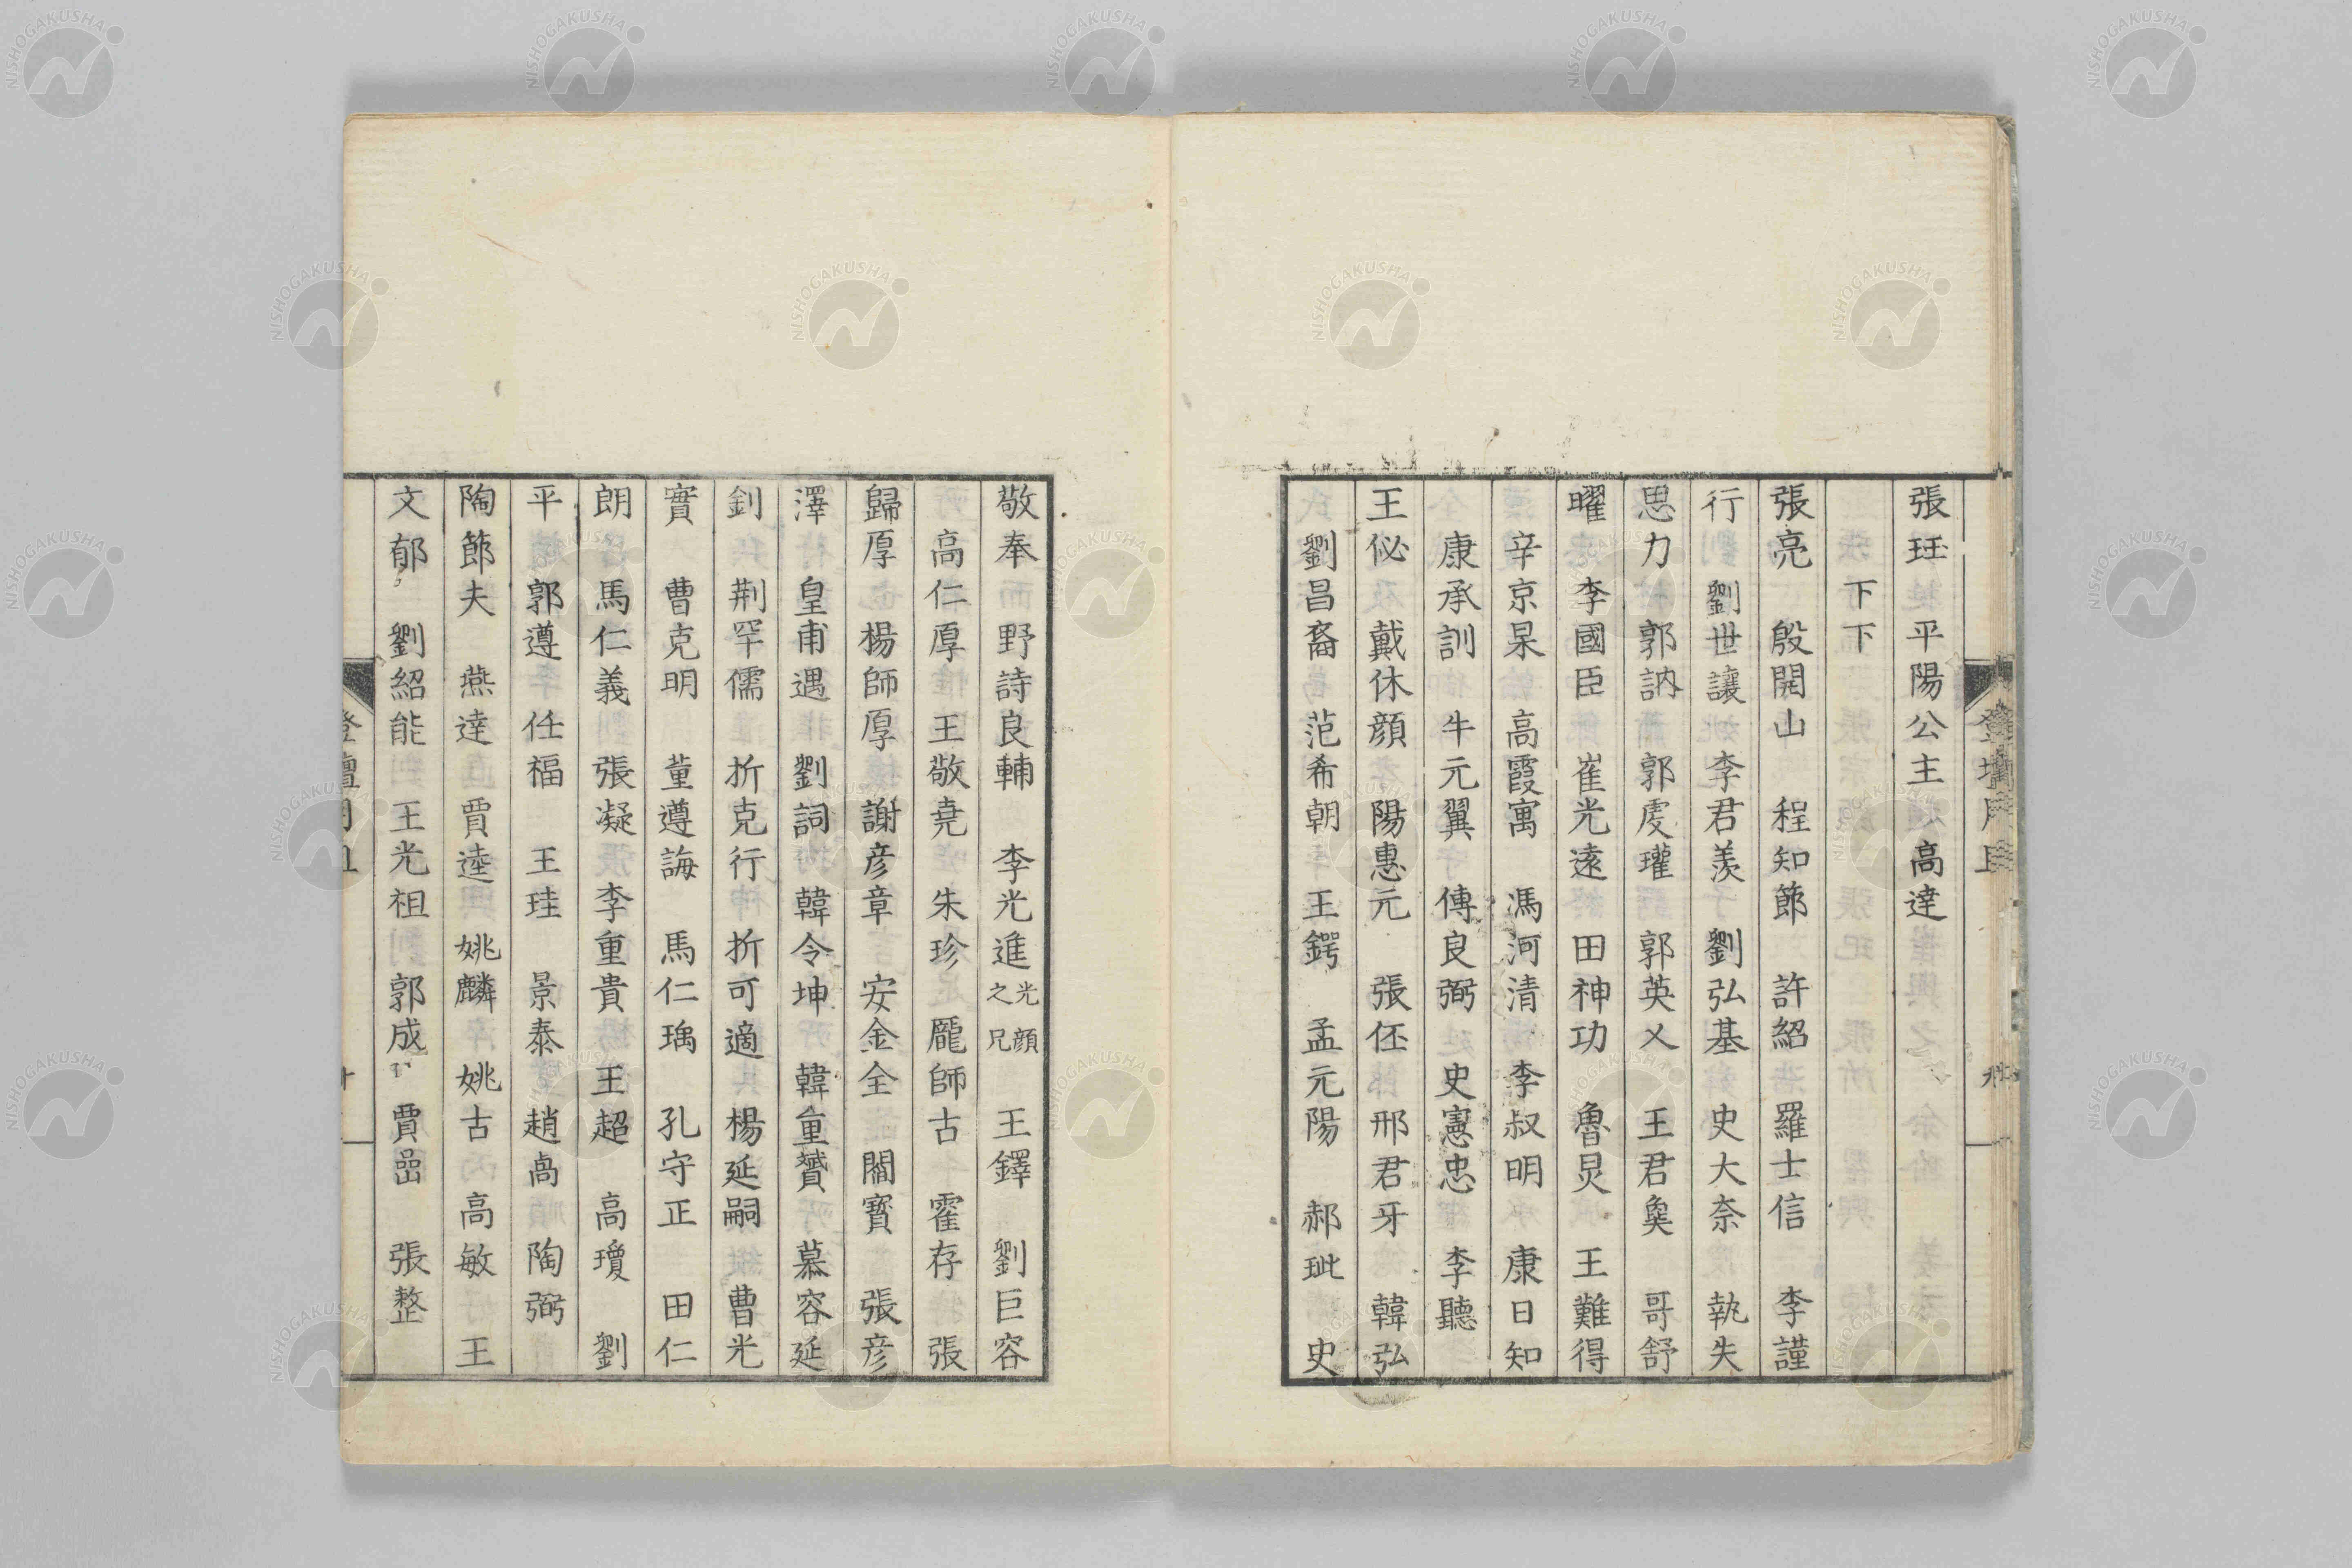 張玨　平陽公主　高達
下下
張亮　殷開山　程知節　許紹　羅士信　李謹
行　劉世讓　李君羨　劉弘基　史大奈　執失
思力　郭訥　郭虔瓘　郭英乂　王君㚟　哥舒
曜　李國臣　崔光遠　田神功　魯炅　王難得
辛京杲　高霞寓　馮河清　李叔明　康日知
康承訓　牛元翼　傅良弼　史憲忠　李聽
王佖　戴休顏　陽惠元　張伾　邢君牙　韓弘
劉昌裔　范希朝　王鍔　孟元陽　郝玼　史
敬奉　野詩良輔　李光進光顏之兄　王鐸　劉巨容
高仁厚　王敬蕘　朱珍　龐師古　霍存　張
歸厚　楊師厚　謝彥章　安金全　閻寶　張彥
澤　皇甫遇　劉詞　韓令坤　韓重贇　慕容延
釗　荆罕儒　折克行　折可適　楊延嗣　曹光
實　曹克明　董遵誨　馬仁瑀　孔守正　田仁
朗　馬仁義　張凝　李重貴　王超　高瓊　劉
平　郭遵　任福　王珪　景泰　趙卨　陶弼
陶節夫　燕達　賈逵　姚麟　姚古　高敏　王
文郁　劉紹能　王光祖　郭成　賈嵒　張整